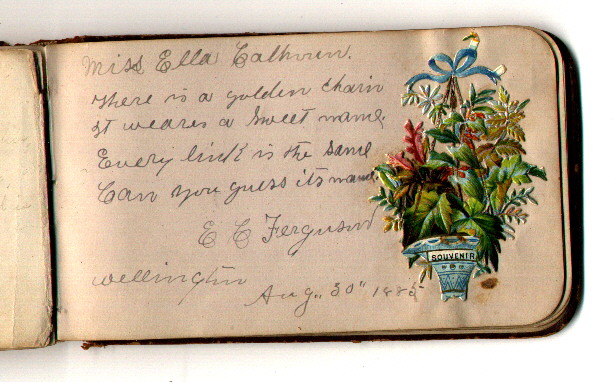 Miss Ella Calhoun.
There is a golden chain
It weares a Sweet name.
Every link is the same
Can you guess its name
E C Ferguson
Wellington
Aug. 30" 1885
SOUVENIR